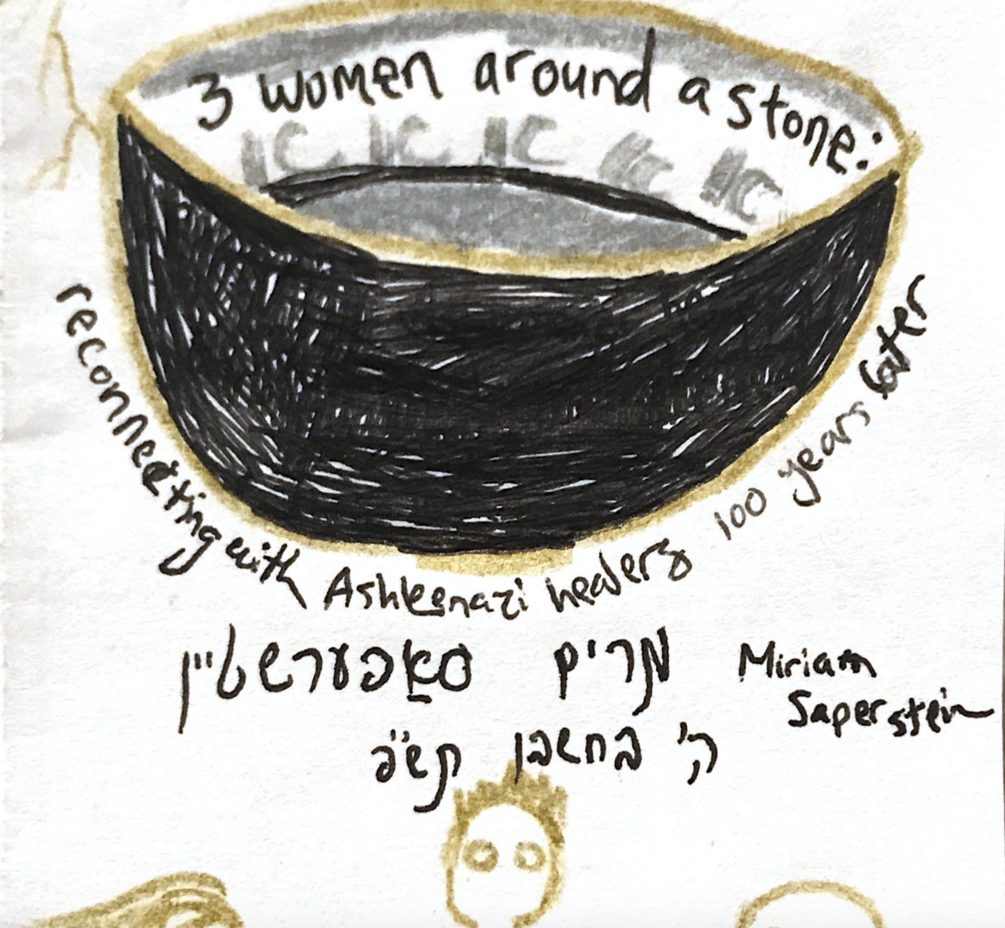 3 women around a stone:
א א א א א
reconnecting with Ashkenazi healers 100 years later
מרים סאַפערשטיין
Miriam
Saperstein
ה' בחשבן תש״פ